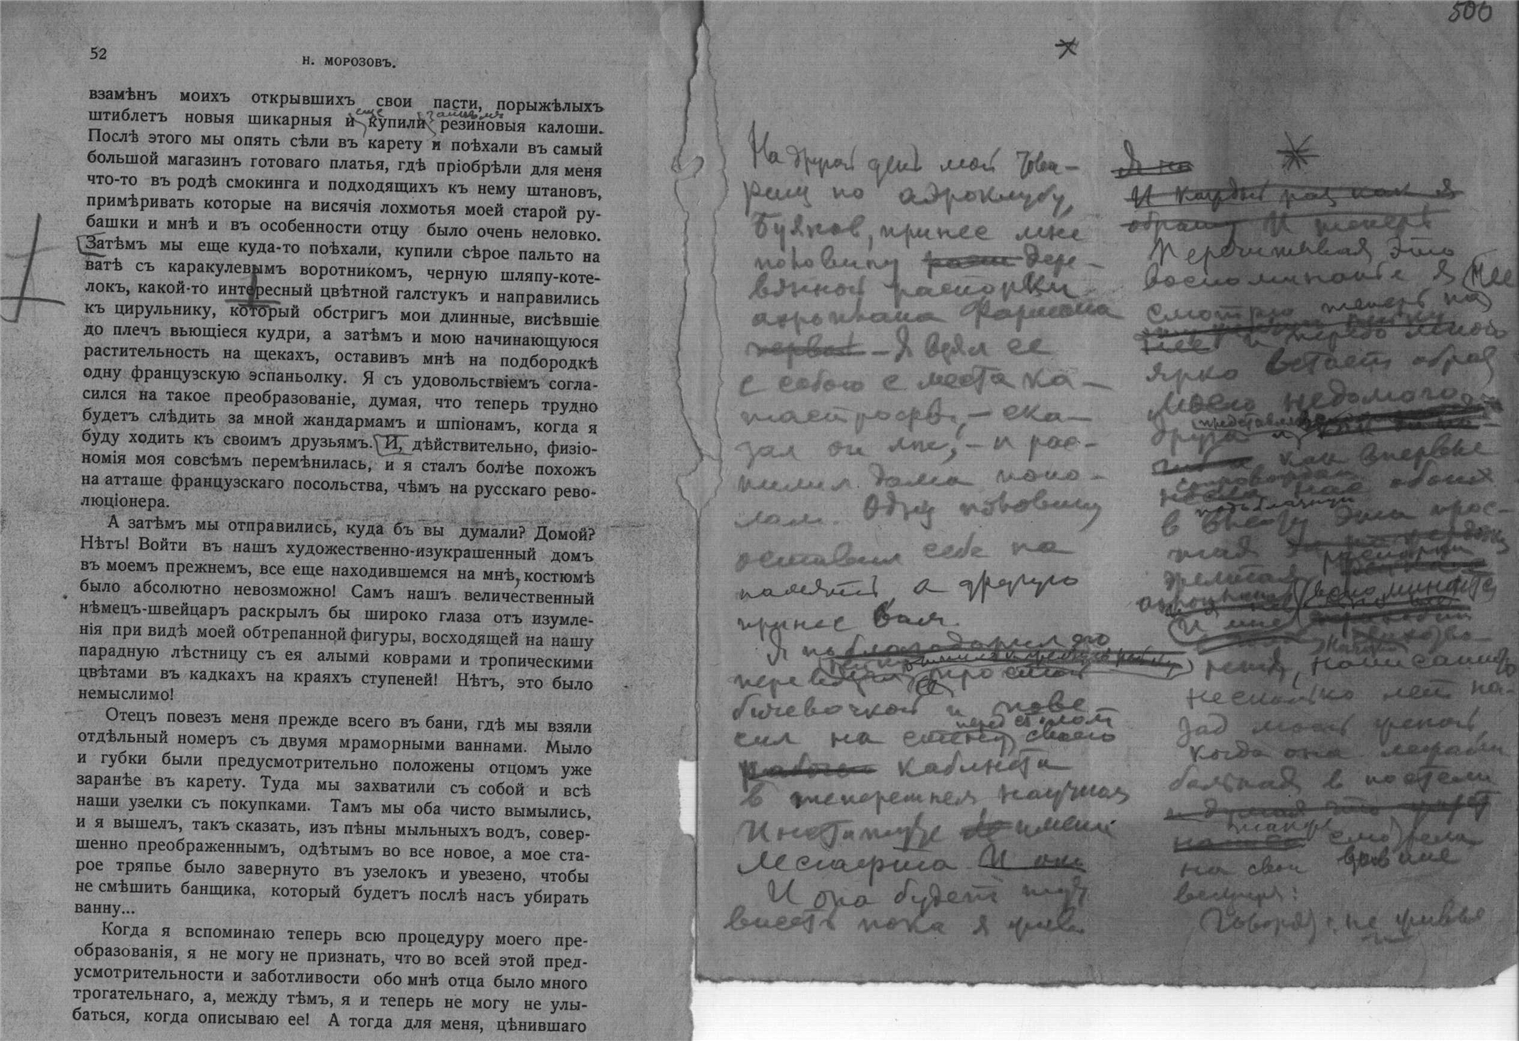 52
Н. МОРОЗОВЪ.
взамѣнъ моихъ открывшихъ свои пасти, порыжѣлыхъ
еще
штиблетъ новыя шикарныя и купили резиновыя калоши.
Послѣ этого мы опять сѣли въ карету и поѣхали въ самый
большой магазинъ готоваго платья, гдѣ пріобрѣли для меня
что-то въ родѣ смокинга и подходящихъ къ нему штановъ,
примѣривать которые на висячія лохмотья моей старой ру-
башки и мнѣ и въ особенности отцу было очень неловко.
Затѣмъ мы еще куда-то поѣхали, купили сѣрое пальто на
ватѣ съ каракулевымъ воротникомъ, черную шляпу-коте-
локъ, какой-то интересный цвѣтной галстукъ и направились
къ цирульнику, который обстригъ мои длинные, висѣвшіе
до плечъ вьющіеся кудри, а затѣмъ и мою начинающуюся
растительность на щекахъ, оставивъ мнѣ на подбородкѣ
одну французскую эспаньолку. Я съ удовольствіемъ согла-
сился на такое преобразованіе, думая, что теперь трудно
будетъ слѣдить за мной жандармамъ и шпіонамъ, когда я
буду ходить къ своимъ друзьямъ. И, дѣйствительно, физіо-
номія моя совсѣмъ перемѣнилась, и я сталъ болѣе похожъ
на атташе французскаго посольства, чѣмъ на русскаго рево-
люціонера.
А затѣмъ мы отправились, куда бъ вы думали? Домой?
Нѣтъ! Войти въ нашъ художественно-изукрашенный домъ
въ моемъ прежнемъ, все еще находившемся на мнѣ, костюмѣ
было абсолютно невозможно! Самъ нашъ величественный
нѣмецъ-швейцаръ раскрылъ бы широко глаза отъ изумле-
нія при видѣ моей обтрепанной фигуры, восходящей на нашу
парадную лѣстницу съ ея алыми коврами и тропическими
цвѣтами въ кадкахъ на краяхъ ступеней! Нѣтъ, это было
немыслимо!
Отецъ повезъ меня прежде всего въ бани, гдѣ мы взяли
отдѣльный номеръ съ двумя мраморными ваннами. Мыло
и губки были предусмотрительно положены отцомъ уже
заранѣе въ карету. Туда мы захватили съ собой и всѣ
наши узелки съ покупками. Тамъ мы оба чисто вымылись,
и я вышелъ, такъ сказать, изъ пѣны мыльныхъ водъ, совер-
шенно преображеннымъ, одѣтымъ во все новое, а мое ста-
рое тряпье было завернуто въ узелокъ и увезено, чтобы
не смѣшить банщика, который будетъ послѣ насъ убирать
ванну...
Когда я вспоминаю теперь всю процедуру моего пре-
образованія, я не могу не признать, что во всей этой пред-
усмотрительности и заботливости обо мнѣ отца было много
трогательнаго, а, между тѣмъ, я и теперь не могу не улы-
баться, когда описываю ее! А тогда для меня, цѣнившаго
506
На другой день мой това-
рищ по аэроклубу,
Буянов, принес мне
половину дере-
вянной распорки
аэроплана Фармана
— Я взял ее
с собою с места ка-
тастрофы, — ска-
зал он мне, — и рас-
пилил дома попо-
лам. Одну половину
оставил себе на
память, а другую
принес Вам.
Я поблагодарил его
бичевочкой и пове
сил на стену своего
кабинета
в теперешнем научном
Институте имени
Лесгафта И он
И она будет тут
висеть пока я жив.
Я но
И каждый раз как я
И теперь
Перечитывая это
воспоминание я
смотрю теперь на
и передо мною
ярко встает образ
моего недолгого
друга и
как впервые
нас обоих
в высоту эта прос-
тая
аэроплана
написанного
несколько лет на-
зад моей женой,
когда она лежала
больная в постели
смотрела
на свои
Говорят: не